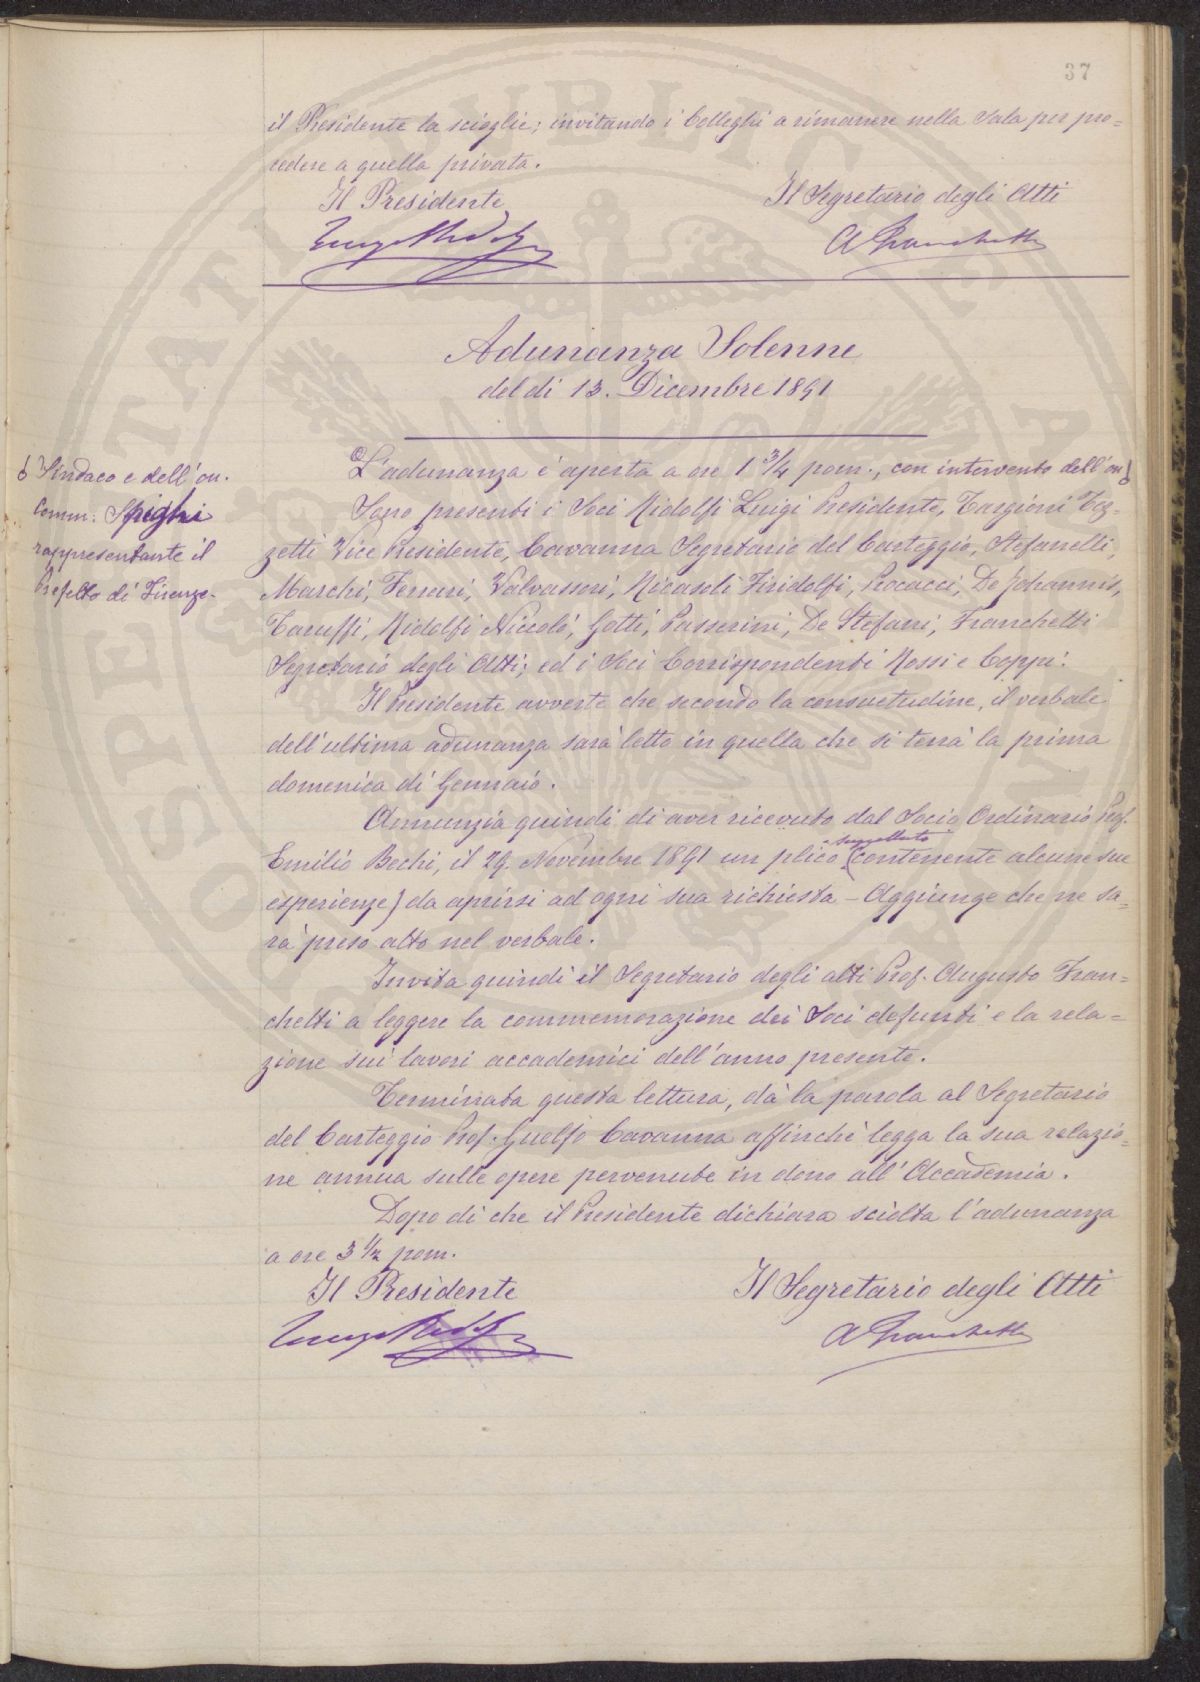 37
il Presidente la scioglie; invitando i Colleghi a rimanere nella Sala per pro=
cedere a quella privata.
Il Presidente
Il Segretario degli Atti
A Franchetti
Adunanza Solenne
del dì 13. Dicembre 1891
L'adunanza è aperta a ore 1 3/4 pom., con intervento dell'on
Sindaco e dell'on.
Comm: Spighi
rappresentante il
Prefetto di Firenze.
Sono presenti i Soci Ridolfi Luigi Presidente, Targioni Toz-
zetti Vice Presidente, Cavanna Segretario del Carteggio, Stefanelli,
Marchi, Ferrari, Valvassori, Ricasoli Firidolfi, Pocacci, De Johannis,
Taruffi, Ridolfi Niccolò, Gotti, Passerini, De Stefani, Franchetti
Segretario degli Atti; ed i Soci Corrispondenti Rossi e Coppi.
Il Presidente avverte che secondo la consuetudine, il verbale
dell'ultima adunanza sarà letto in quella che si terrà la prima
domenica di Gennaio.
Annunzia quindi di aver ricevuto dal Socio Ordinario Prof.
suggellato
Emilio Bechi, il 29. Novembre 1891 un plico (contenente alcune sue
esperienze) da aprirsi ad ogni sua richiesta - Aggiunge che ne sa=
rà preso atto nel verbale.
Invita quindi il Segretario degli atti Prof. Augusto Fran=
chetti a leggere la commemorazione dei Soci defunti e la rela=
zione sui lavori accademici dell'anno presente.
Terminata questa lettura, dà la parola al Segretario
del Carteggio Prof. Guelfo Cavanna affinchè legga la sua relazio=
ne annua sulle opere pervenute in dono all'Accademia.
Dopo di che il Presidente dichiara sciolta l'adunanza
a ore 3 1/2 pom.
Il Presidente
Il Segretario degli Atti
A Franchetti